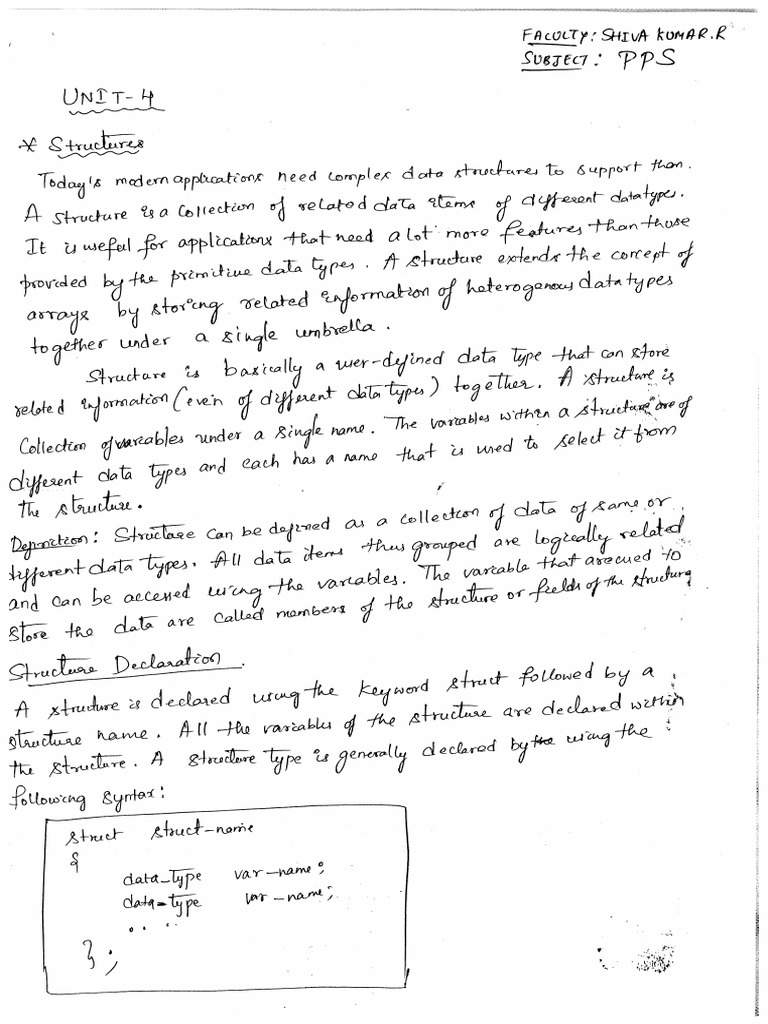 FACULTY: SHIVA KUMAR.R
SUBJECT: PPS
UNIT-4
* Structures
Today's modern applications need complex data structures to support than.
A structure is a collection of related data items of different datatypes.
It is useful for applications that need a lot more features than those
provided by the primitive data types. A structure extends the concept of
arrays by storing related information of heterogenous data types
together under a single umbrella.
Structure is basically a user-defined data type that can store
related information (even of different data types) together. A structure is
Collection of variables under a single name. The variables within a structure are of
different data types and each has a name that is used to select it from
the structure.
Definition: Structure can be defined as a collection of data of same or
different data types. All data items thus grouped are logically related
and can be accessed using the variables. The variable that are used to
store the data are called members of the structure or fields of the structure
Structure Declaration.
A structure is declared using the keyword struct followed by a
structure name. All the variables of the structure are declared within
the structure. A structure type is generally declared by the using the
following syntax:
struct struct-name
{
data_type var-name;
data-type var-name;
.. ..
};